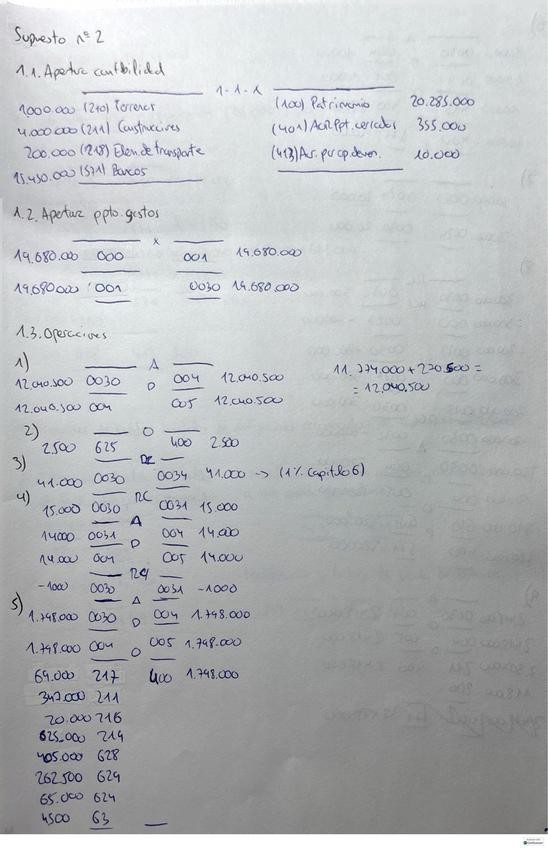 Supuesto nº 2
1.1. Apertura contabilidad
1-1-X
1000.000 (210) Terrenos (100) Patrimonio 20.285.000
4.000.000 (211) Construcciones (401) Acr. Ppt. cerrados 355.000
200.000 (218) Elem. de transporte (413) Acr. por op. deven. 10.000
15.450.000 (571) Bancos
1.2. Apertura ppto. gastos
x
14.680.000 000 001 14.680.000
14.680.000 001 0030 14.680.000
1.3. Operaciones
1) A 11.774.000 + 270.500 =
12.040.500 0030 D 004 12.040.500 = 12.040.500
12.040.500 004 005 12.040.500
2) O
2.500 625 400 2.500
3) RC
41.000 0030 0034 41.000 -> (1% capítulo 6)
4) RC
15.000 0030 0031 15.000
A
14000 0031 D 004 14.000
14.000 004 005 14.000
RC/
-1000 0030 0031 -1000
5) A
1.798.000 0030 D 004 1.798.000
1.798.000 004 O 005 1.798.000
69.000 217 400 1.798.000
347.000 211
20.000 216
625.000 214
405.000 628
262.500 629
65.000 624
4500 63